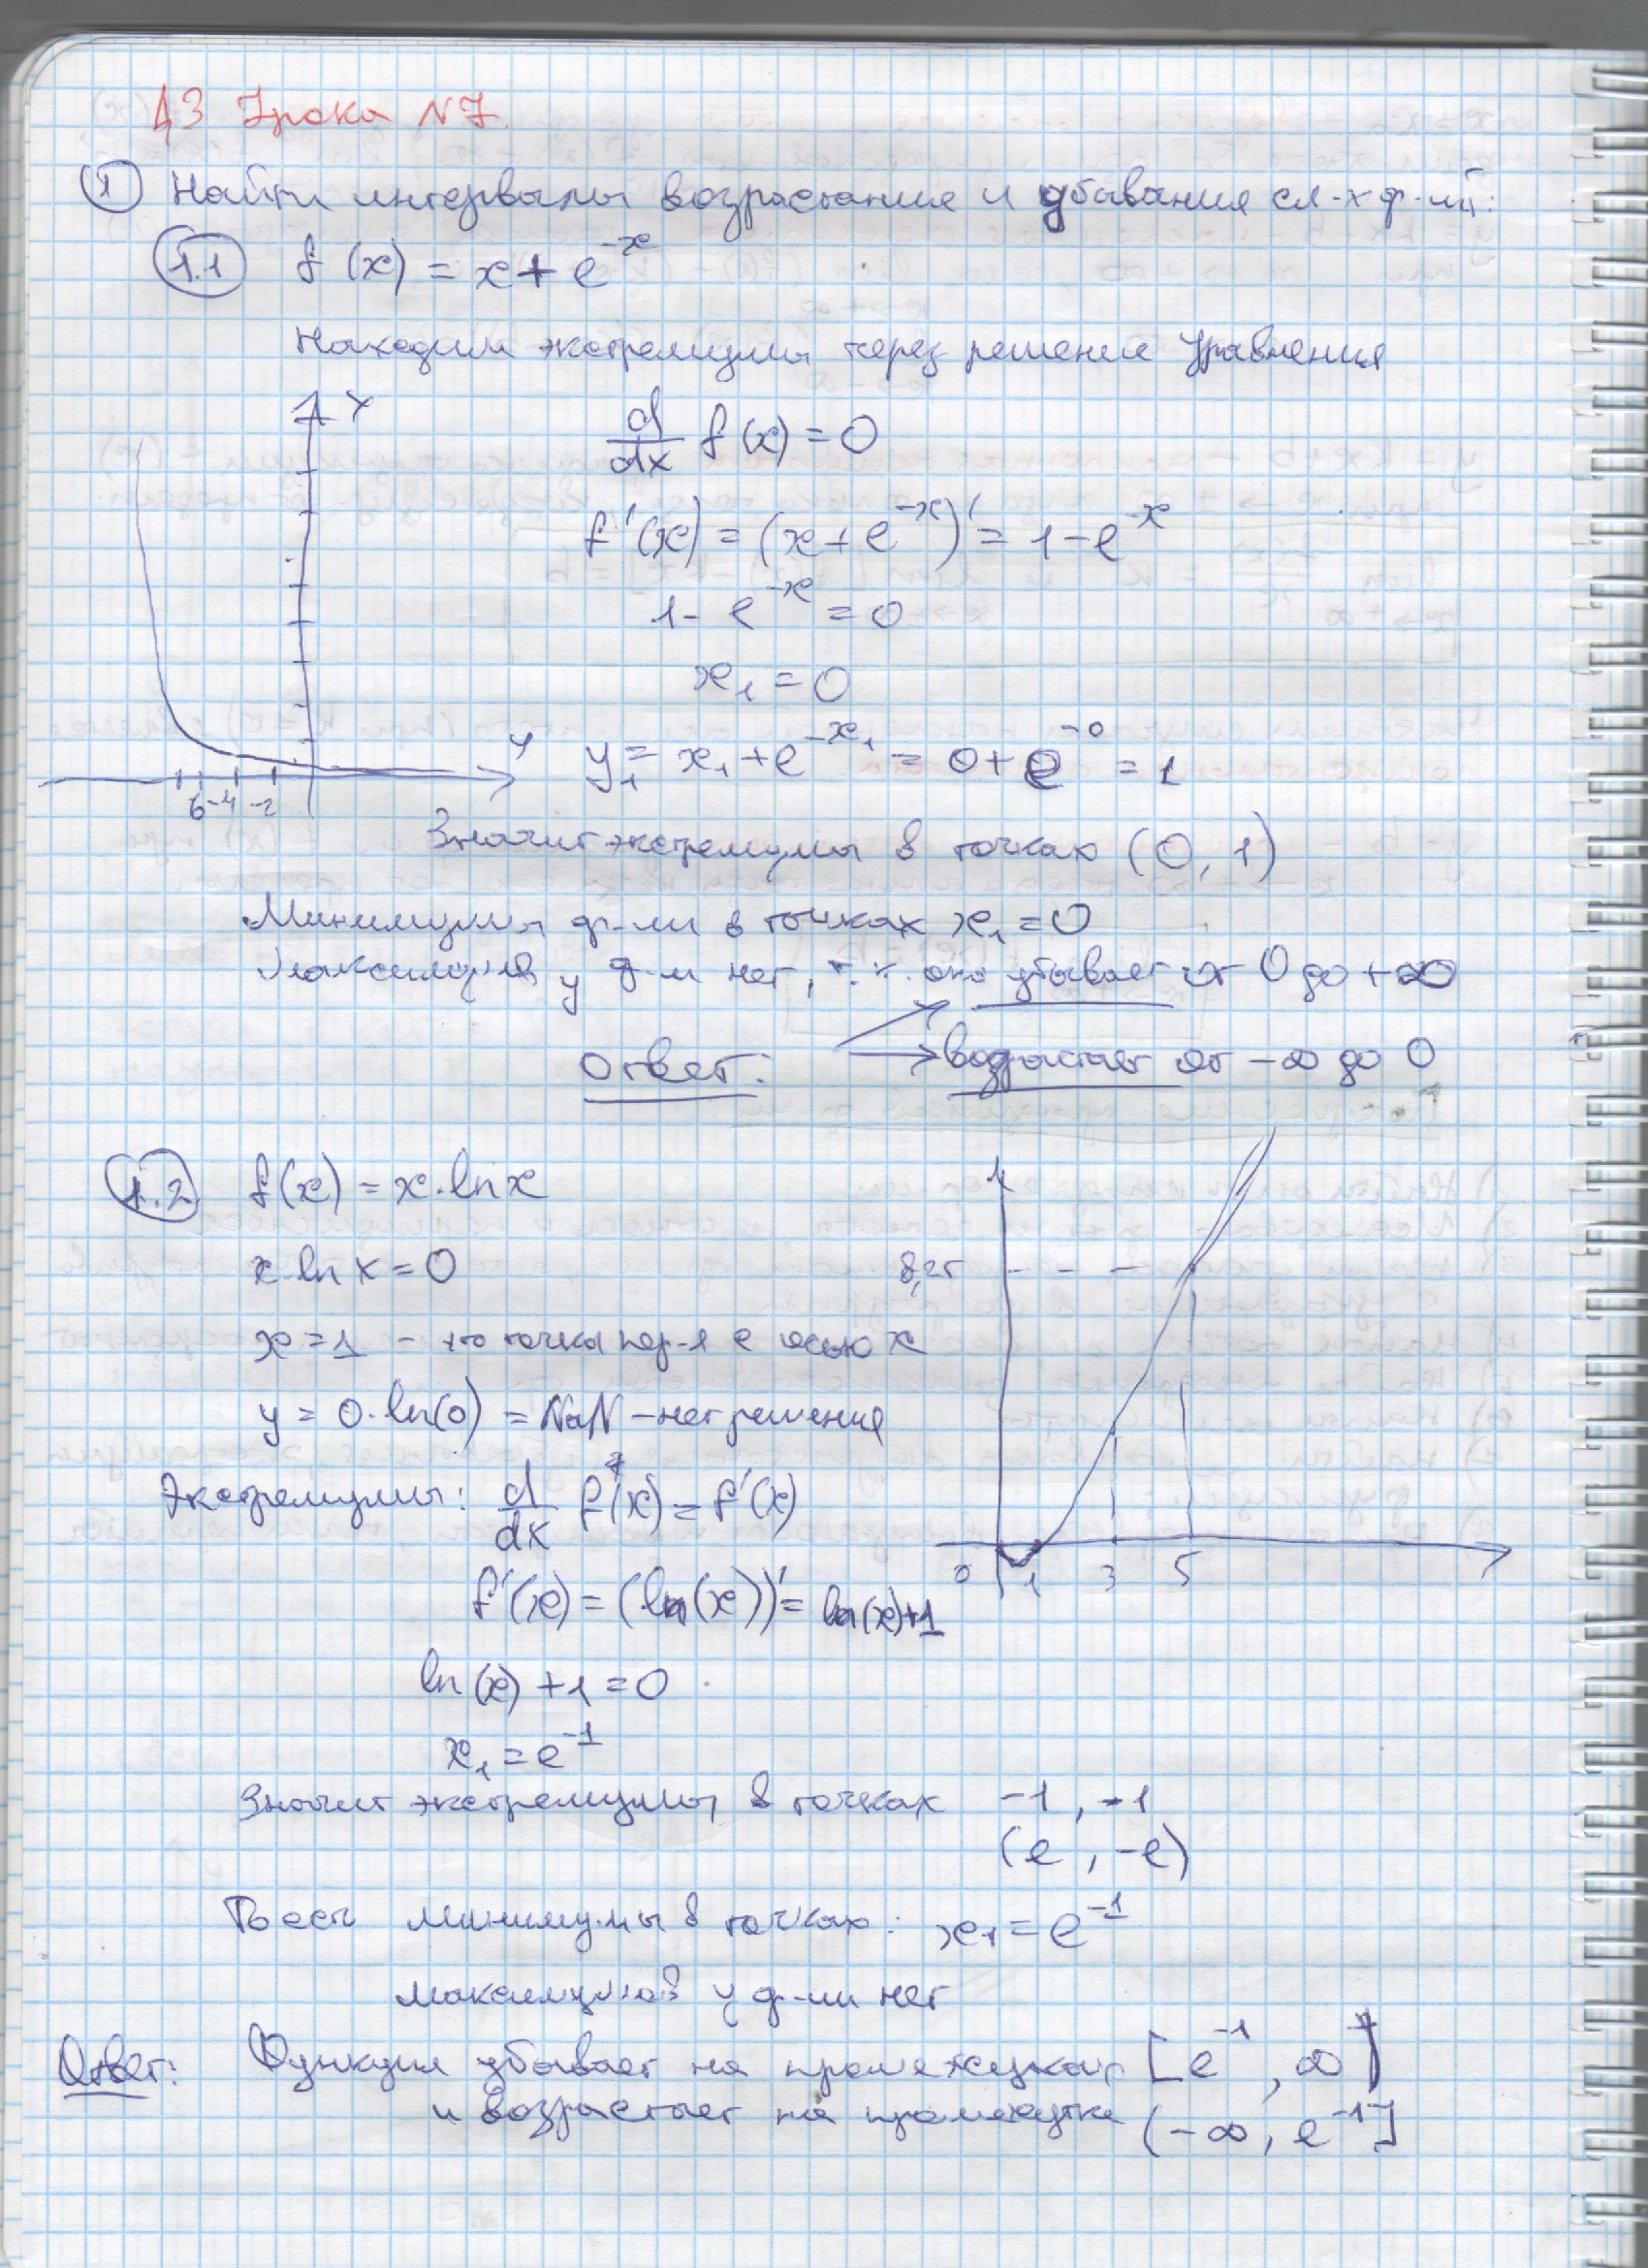 ДЗ Урока №7.
① Найти интервалы возрастание и убывание сл-х ф-ий:
1.1 f(x) = x + e^{-x}
Находим экстремумы через решение уравнения
d/dx f(x) = 0
f'(x) = (x + e^{-x})' = 1 - e^{-x}
1 - e^{-x} = 0
x₁ = 0
y₁ = x₁ + e^{-x₁} = 0 + e^{-0} = 1
Y
y
6 -4 -2
Значит экстремумы в точках (0, 1)
Минимумы ф-ии в точках x₁ = 0
Максимумов у ф-и нет, т.к. она убывает от 0 до +∞
Ответ: возрастает от -∞ до 0
1.2 f(x) = x·ln x
x ln x = 0
x = 1 - это точка пер-я с осью x
y = 0·ln(0) = NaN - нет решения
Экстремумы: d/dx f(x) = f'(x)
f'(x) = (ln(x))' = ln(x)+1
ln(x) + 1 = 0
x₁ = e^{-1}
8,25
0 1 3 5
Значит экстремумы в точках (e^{-1}, -e^{-1})
То есть минимумы в точках: x₁ = e^{-1}
максимумов у ф-ии нет
Ответ: Функция убывает на промежутках [e^{-1}, ∞)
и возрастает на промежутке (-∞, e^{-1}]